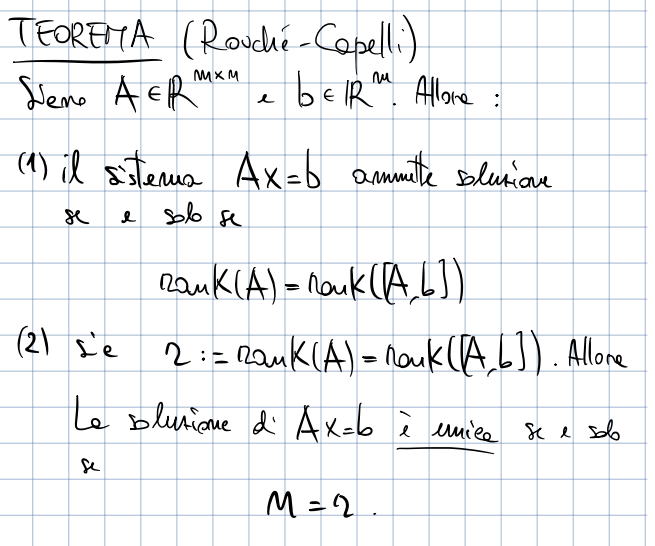 TEOREMA (Rouché-Capelli)
Siano A ∈ ℝ^{m×n} e b ∈ ℝ^m. Allora :
(1) il sistema Ax=b ammette soluzione
se e solo se
rank(A) = rank([A,b])
(2) sia r := rank(A) = rank([A,b]). Allora
La soluzione di Ax=b è unica se e solo
se
n = r.